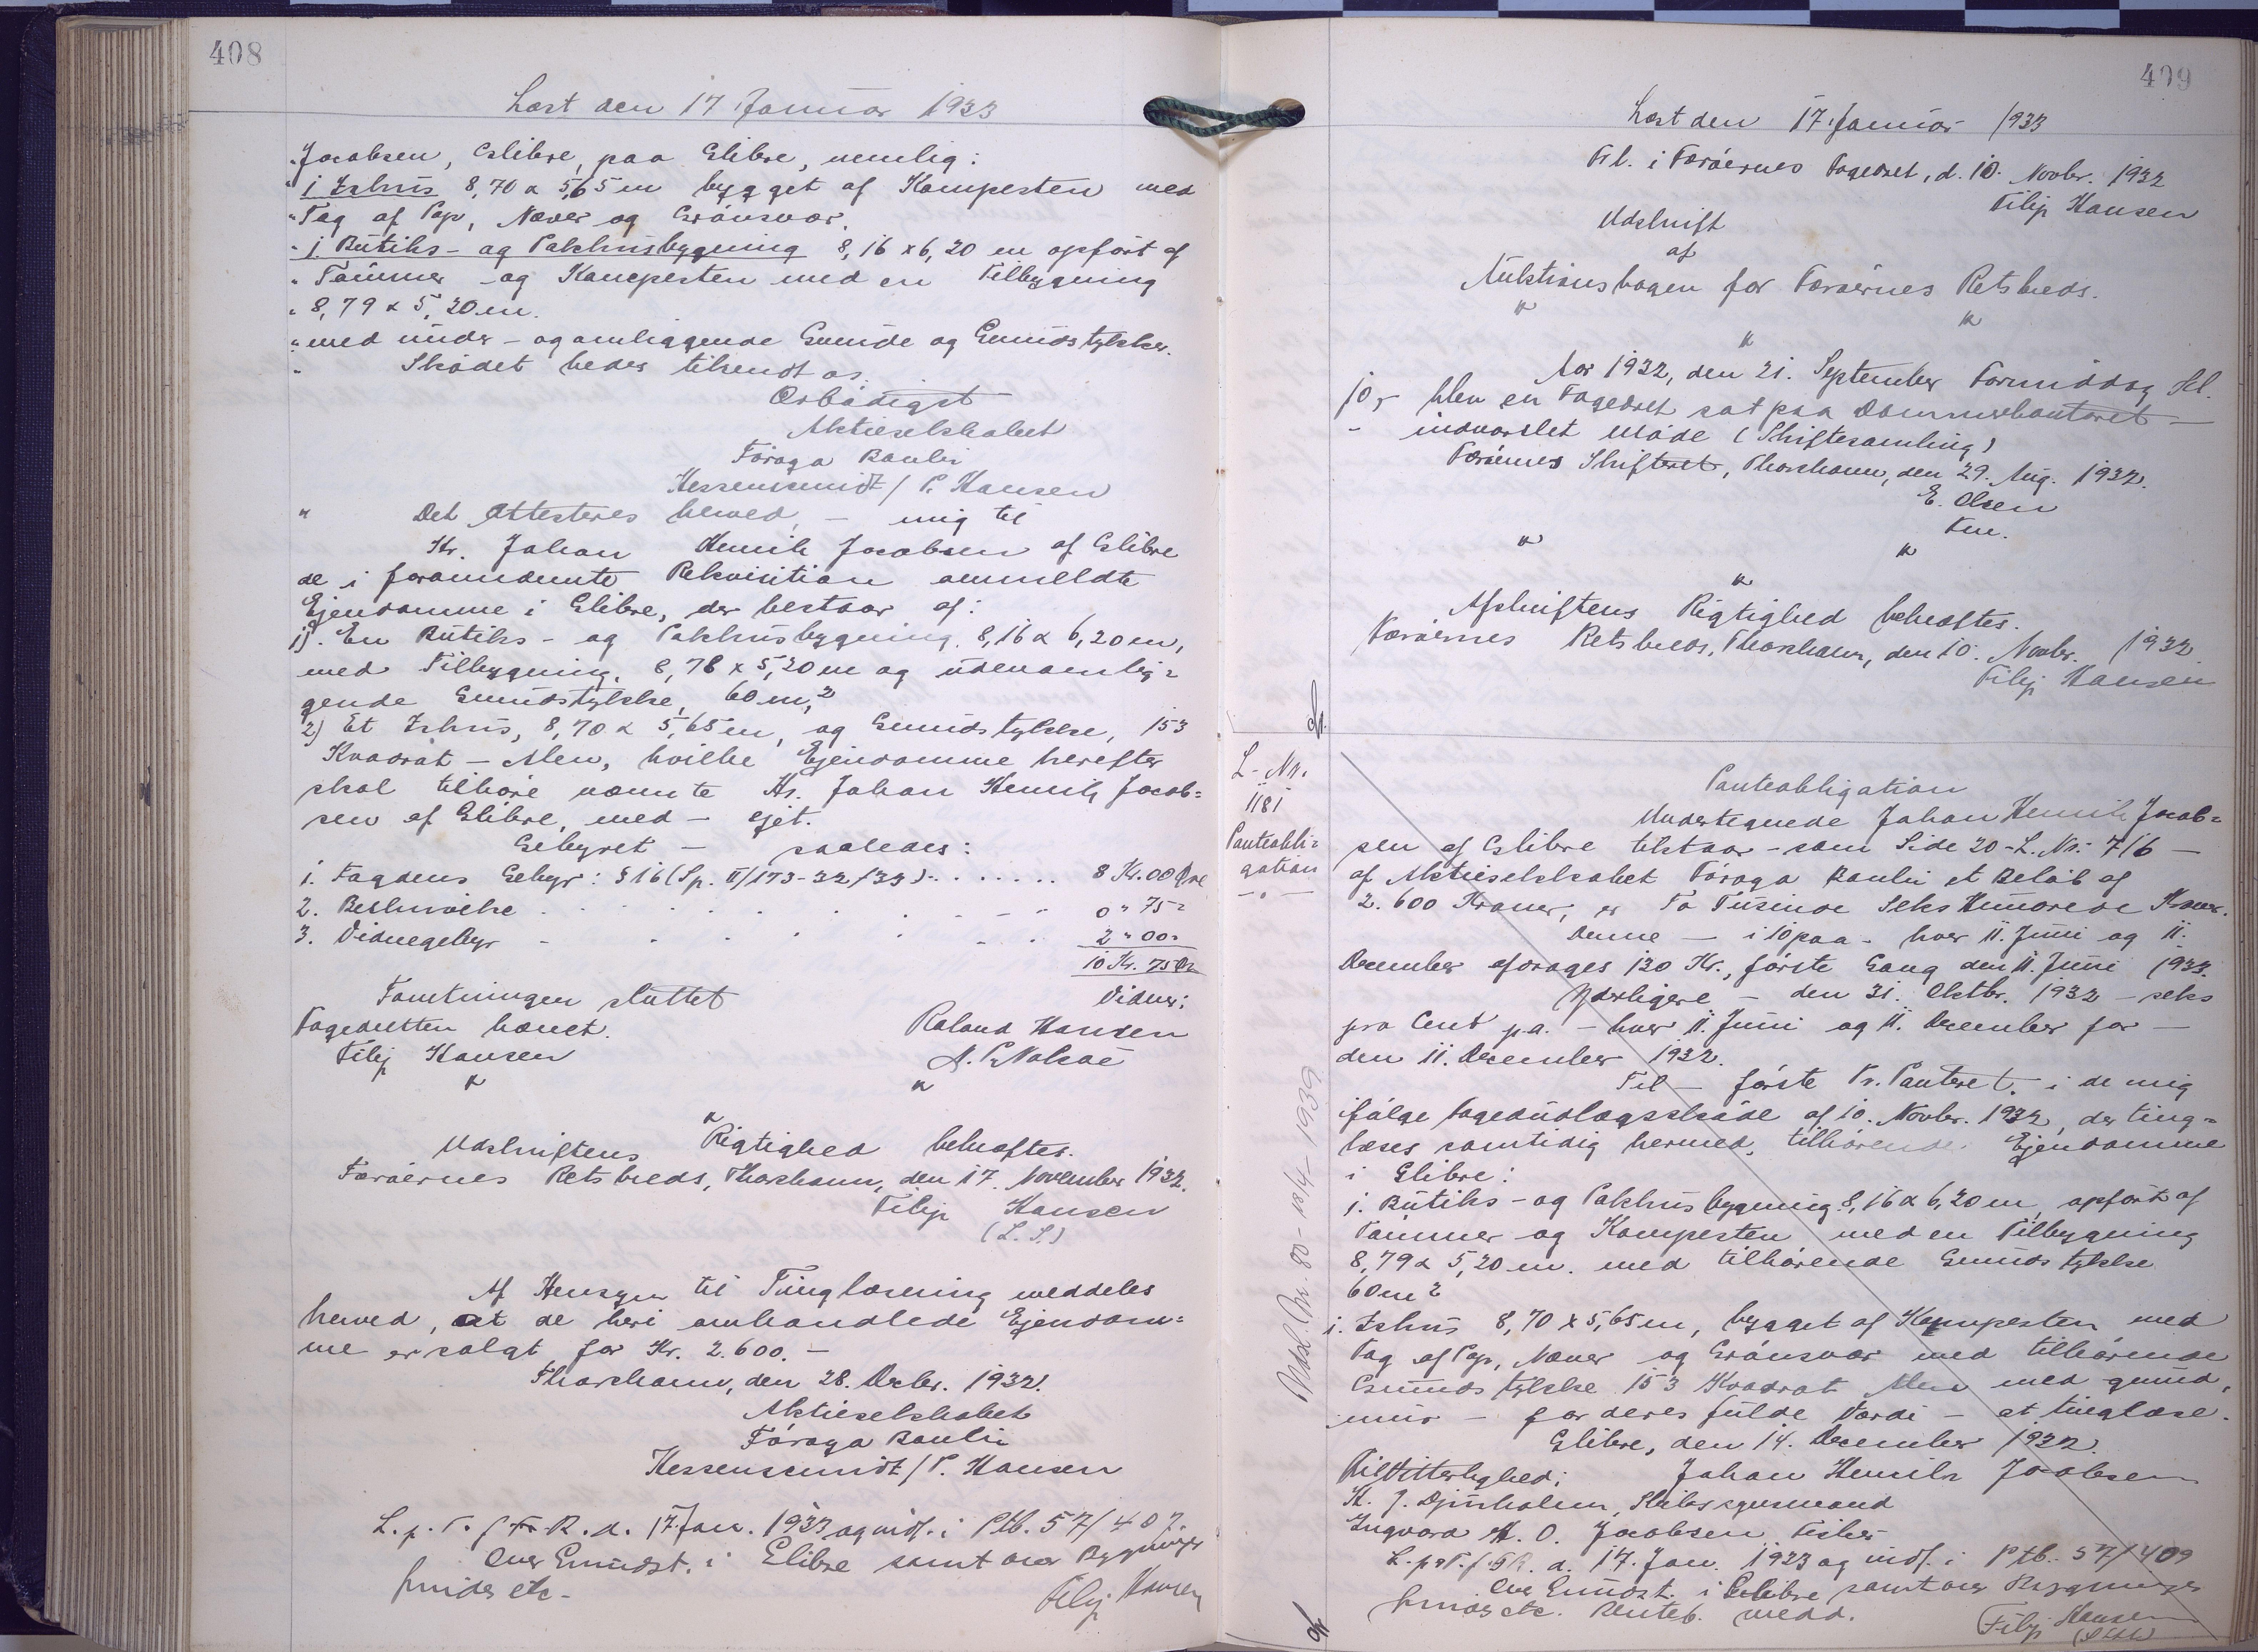 408
Læst den 17 Januar 1933
Jacobsen, Eslibre, paa Elibre, nemlig:
"1 Ishus 8,70 x 5,65 m bygget af Kampesten med
"Tag af Pap, Næver og Grønsvær.
"1. Butiks- og Pakhusbygning 8,16 x 6,20 m opført af
"Tømmer og Kampesten med en Tilbygning
"8,79 x 5,20 m.
"med under- og omliggende Grunde og Grundstykker.
" Skødet bedes tilsendt os.
Ærbødigst
Aktieselskabet
Føroya Banki
Kessenscmidt / P. Hansen
" Det Attesteres herved, - mig til
Hr. Johan Henrik Jacobsen af Eslibre
de i foranmeldte Rekvisition ommeldte
Ejendomme i Elibre, der bestaar af:
1). En Butiks- og Pakhusbygning, 8,16 x 6,20 m,
med Tilbygning, 8,78 x 5,20 m og udenomlig=
gende Grundstykke, 60 m,2
2) Et Ishus, 8,70 x 5,65 m, og Grundstykke, 153
Kvadrat - Alen, hvilke Ejendomme herefter
skal tilhøre nævnte Hr. Johan Henrik Jacob=
sen af Elibre, med - ejet.
Gebyret - saaledes:
1. Fogdens Gebyr: § 16 (Sp. II/173-32/33) . . . . . . . 8 Kr. 00 Øre
2. Beskrivelse . . . . . . 0 " 75 "
3. Vidnegebyr - . . . . . . 2 " 00 "
10 Kr. 75 Ør
Forretningen sluttet Vidner:
Fogedretten hævet. Roland Hansen
Filip Hansen N. P. Nolsøe
" "
"
Udskriftens Rigtighed bekræftes.
Færøernes Retskreds, Thorshavn, den 17. November 1932.
Filip Hansen
(L. S.)
Af Hensyn til Tinglæsning meddeles
herved, at de heri omhandlede Ejendom=
me er solgt for Kr. 2.600. -
Thorshavn, den 28. Decbr. 1932.
Aktieselskabet
Føroya Banki
Kessenscmidt / P. Hansen
L. p. T. f F. R. d. 17 Jan. 1933 og indf. i Ptb. 57/407
over Grundst. i Elibre samt over Bygninger
grunder etc - Filip Hansen
409
Læst den 17. Januar 1933
Frl. i Færøernes Fogedret, d. 10. Novbr. 1932
Filip Hansen
Udskrift
af
Auktionsbogen for Færøernes Retskreds.
" "
"
Aar 1932, den 21. September Formiddag Kl.
10, - blev en Fogedret sat paa Dommerkontoret -
- indvarslet Møde (Skiftesamling)
Færøernes Skifteret, Thorshavn, den 29. Aug. 1932.
E. Olsen
Fm.
" "
"
Afskriftens Rigtighed bekræftes.
Færøernes Retskreds, Thorshavn, den 10. Novbr. 1932.
Filip Hansen
L - Nr.
1181
Panteobli=
gation
Panteobligation
Undertegnede Johan Henrik Jacob=
sen af Eslibre tilstaar - som Side 20 - L. Nr. 716 -
af Aktieselskabet Føroya Banki et Beløb af
2.600 Kroner, er To Tusinde Seks Hundrede Kroner.
Denne - i 10 paa - hver 11. Juni og 11.
December afdrages 130 Kr., første Gang den 11. Juni 1933.
Yderligere - den 31. Oktbr. 1932 - seks
pro Cent p.a. - hver 11. Juni og 11. December for -
den 11. December 1932.
Til - første Pr. Panteret i de mig
ifølge Fogedudlægsskøde af 10. Novbr. 1932, der ting=
læses samtidig hermed, tilhørende Ejendomme
i Elibre:
1. Butiks- og Pakhusbygning 8,16 x 6,20 m, opført af
Tømmer og Kampesten med en Tilbygning
8,79 x 5,20 m. med tilhørende Grundstykke
60 m 2
1. Ishus 8,70 x 5,65 m, bygget af Kampesten med
Tag af Pap, Næver og Grønsvær med tilhørende
Grundstykke 153 Kvadrat Alen med grund,
mur - for deres fulde Værdi - at tinglæse.
Elibre, den 14. December 1932.
Til Vitterlighed: Johan Henrik Jacobsen
H. J. Djurholm, Skibssynsmand
Ingvard H. O. Jacobsen, Fisker
L. p. T. f. F. R. d. 17. Jan. 1933 og indf. i Ptb. 57/409
over Grundst. i Eslibre samt over Bygninger
grunds etc. Retteb. medd.
Filip Hansen